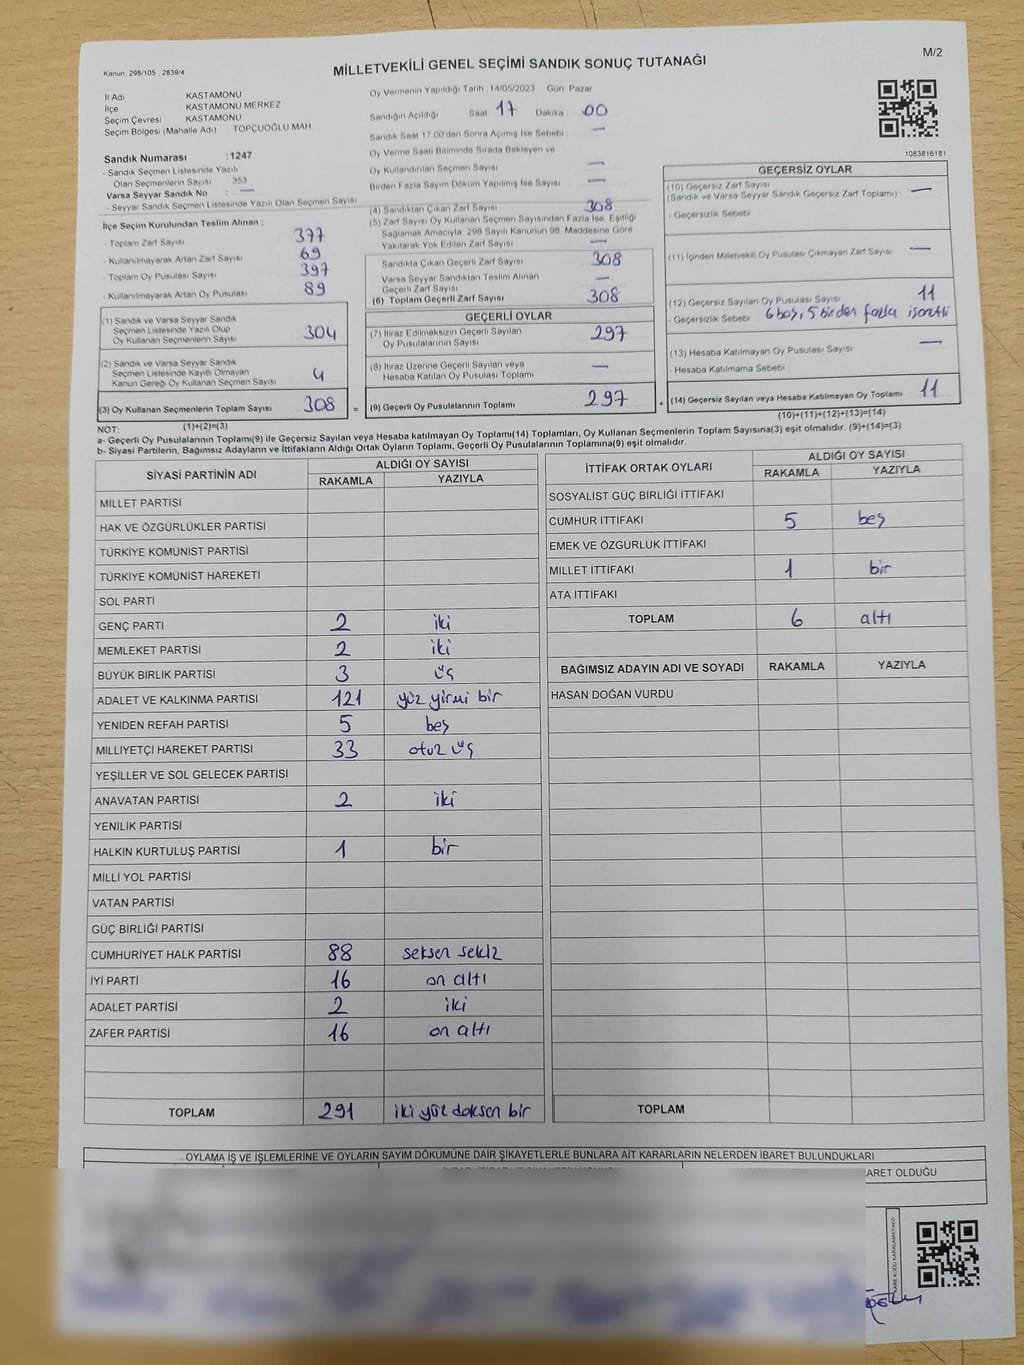 Kanun: 298/105 2839/4
MİLLETVEKİLİ GENEL SEÇİMİ SANDIK SONUÇ TUTANAĞI
M/2
İl Adı KASTAMONU
İlçe KASTAMONU MERKEZ
Seçim Çevresi KASTAMONU
Seçim Bölgesi (Mahalle Adı) TOPÇUOĞLU MAH
Sandık Numarası :1247
- Sandık Seçmen Listesinde Yazılı
Olan Seçmenlerin Sayısı 353
Varsa Seyyar Sandık No : —
- Seyyar Sandık Seçmen Listesinde Yazılı Olan Seçmen Sayısı
İlçe Seçim Kurulundan Teslim Alınan :
- Toplam Zarf Sayısı 377
- Kullanılmayarak Artan Zarf Sayısı 69
- Toplam Oy Pusulası Sayısı 397
- Kullanılmayarak Artan Oy Pusulası 89
(1) Sandık ve Varsa Seyyar Sandık
Seçmen Listesinde Yazılı Olup
Oy Kullanan Seçmenlerin Sayısı 304
(2) Sandık ve Varsa Seyyar Sandık
Seçmen Listesinde Kayıtlı Olmayan
Kanun Gereği Oy Kullanan Seçmen Sayısı 4
(3) Oy Kullanan Seçmenlerin Toplam Sayısı 308 =
Oy Vermenin Yapıldığı Tarih :14/05/2023 Gün Pazar
Sandığın Açıldığı Saat 17 Dakika 00
Sandık Saat 17:00'den Sonra Açılmış İse Sebebi —
Oy Verme Saati Bitiminde Sırada Bekleyen ve
Oy Kullandırılan Seçmen Sayısı —
Birden Fazla Sayım Döküm Yapılmış İse Sayısı —
(4) Sandıktan Çıkan Zarf Sayısı 308
(5) Zarf Sayısı Oy Kullanan Seçmen Sayısından Fazla İse, Eşitliği
Sağlamak Amacıyla, 298 Sayılı Kanunun 98. Maddesine Göre
Yakılarak Yok Edilen Zarf Sayısı —
Sandıkta Çıkan Geçerli Zarf Sayısı 308
Varsa Seyyar Sandıktan Teslim Alınan
Geçerli Zarf Sayısı —
(6) Toplam Geçerli Zarf Sayısı 308
GEÇERLİ OYLAR
(7) İtiraz Edilmeksizin Geçerli Sayılan
Oy Pusulalarının Sayısı 297
(8) İtiraz Üzerine Geçerli Sayılan veya
Hesaba Katılan Oy Pusulası Toplamı —
(9) Geçerli Oy Pusulalarının Toplamı 297 +
1083816181
GEÇERSİZ OYLAR
(10) Geçersiz Zarf Sayısı
(Sandık ve Varsa Seyyar Sandık Geçersiz Zarf Toplamı) —
- Geçersizlik Sebebi
(11) İçinden Milletvekili Oy Pusulası Çıkmayan Zarf Sayısı —
(12) Geçersiz Sayılan Oy Pusulası Sayısı 11
- Geçersizlik Sebebi 6 boş, 5 birden fazla işaretli
(13) Hesaba Katılmayan Oy Pusulası Sayısı —
- Hesaba Katılmama Sebebi
(14) Geçersiz Sayılan veya Hesaba Katılmayan Oy Toplamı 11
NOT: (1)+(2)=(3) (10)+(11)+(12)+(13)=(14)
a- Geçerli Oy Pusulalarının Toplamı(9) ile Geçersiz Sayılan veya Hesaba katılmayan Oy Toplamı(14) Toplamları, Oy Kullanan Seçmenlerin Toplam Sayısına(3) eşit olmalıdır. (9)+(14)=(3)
b- Siyasi Partilerin, Bağımsız Adayların ve İttifakların Aldığı Ortak Oyların Toplamı, Geçerli Oy Pusulalarının Toplamına(9) eşit olmalıdır.
SİYASİ PARTİNİN ADI ALDIĞI OY SAYISI
RAKAMLA YAZIYLA
MİLLET PARTİSİ
HAK VE ÖZGÜRLÜKLER PARTİSİ
TÜRKİYE KOMÜNİST PARTİSİ
TÜRKİYE KOMÜNİST HAREKETİ
SOL PARTİ
GENÇ PARTİ 2 iki
MEMLEKET PARTİSİ 2 iki
BÜYÜK BİRLİK PARTİSİ 3 üç
ADALET VE KALKINMA PARTİSİ 121 yüz yirmi bir
YENİDEN REFAH PARTİSİ 5 beş
MİLLİYETÇİ HAREKET PARTİSİ 33 otuz üç
YEŞİLLER VE SOL GELECEK PARTİSİ
ANAVATAN PARTİSİ 2 iki
YENİLİK PARTİSİ
HALKIN KURTULUŞ PARTİSİ 1 bir
MİLLİ YOL PARTİSİ
VATAN PARTİSİ
GÜÇ BİRLİĞİ PARTİSİ
CUMHURİYET HALK PARTİSİ 88 seksen sekiz
İYİ PARTİ 16 on altı
ADALET PARTİSİ 2 iki
ZAFER PARTİSİ 16 on altı
TOPLAM 291 iki yüz doksan bir
İTTİFAK ORTAK OYLARI ALDIĞI OY SAYISI
RAKAMLA YAZIYLA
SOSYALİST GÜÇ BİRLİĞİ İTTİFAKI
CUMHUR İTTİFAKI 5 beş
EMEK VE ÖZGÜRLÜK İTTİFAKI
MİLLET İTTİFAKI 1 bir
ATA İTTİFAKI
TOPLAM 6 altı
BAĞIMSIZ ADAYIN ADI VE SOYADI RAKAMLA YAZIYLA
HASAN DOĞAN VURDU
TOPLAM
OYLAMA İŞ VE İŞLEMLERİNE VE OYLARIN SAYIM DÖKÜMÜNE DAİR ŞİKAYETLERLE BUNLARA AİT KARARLARIN NELERDEN İBARET BULUNDUKLARI
ARET OLDUĞU